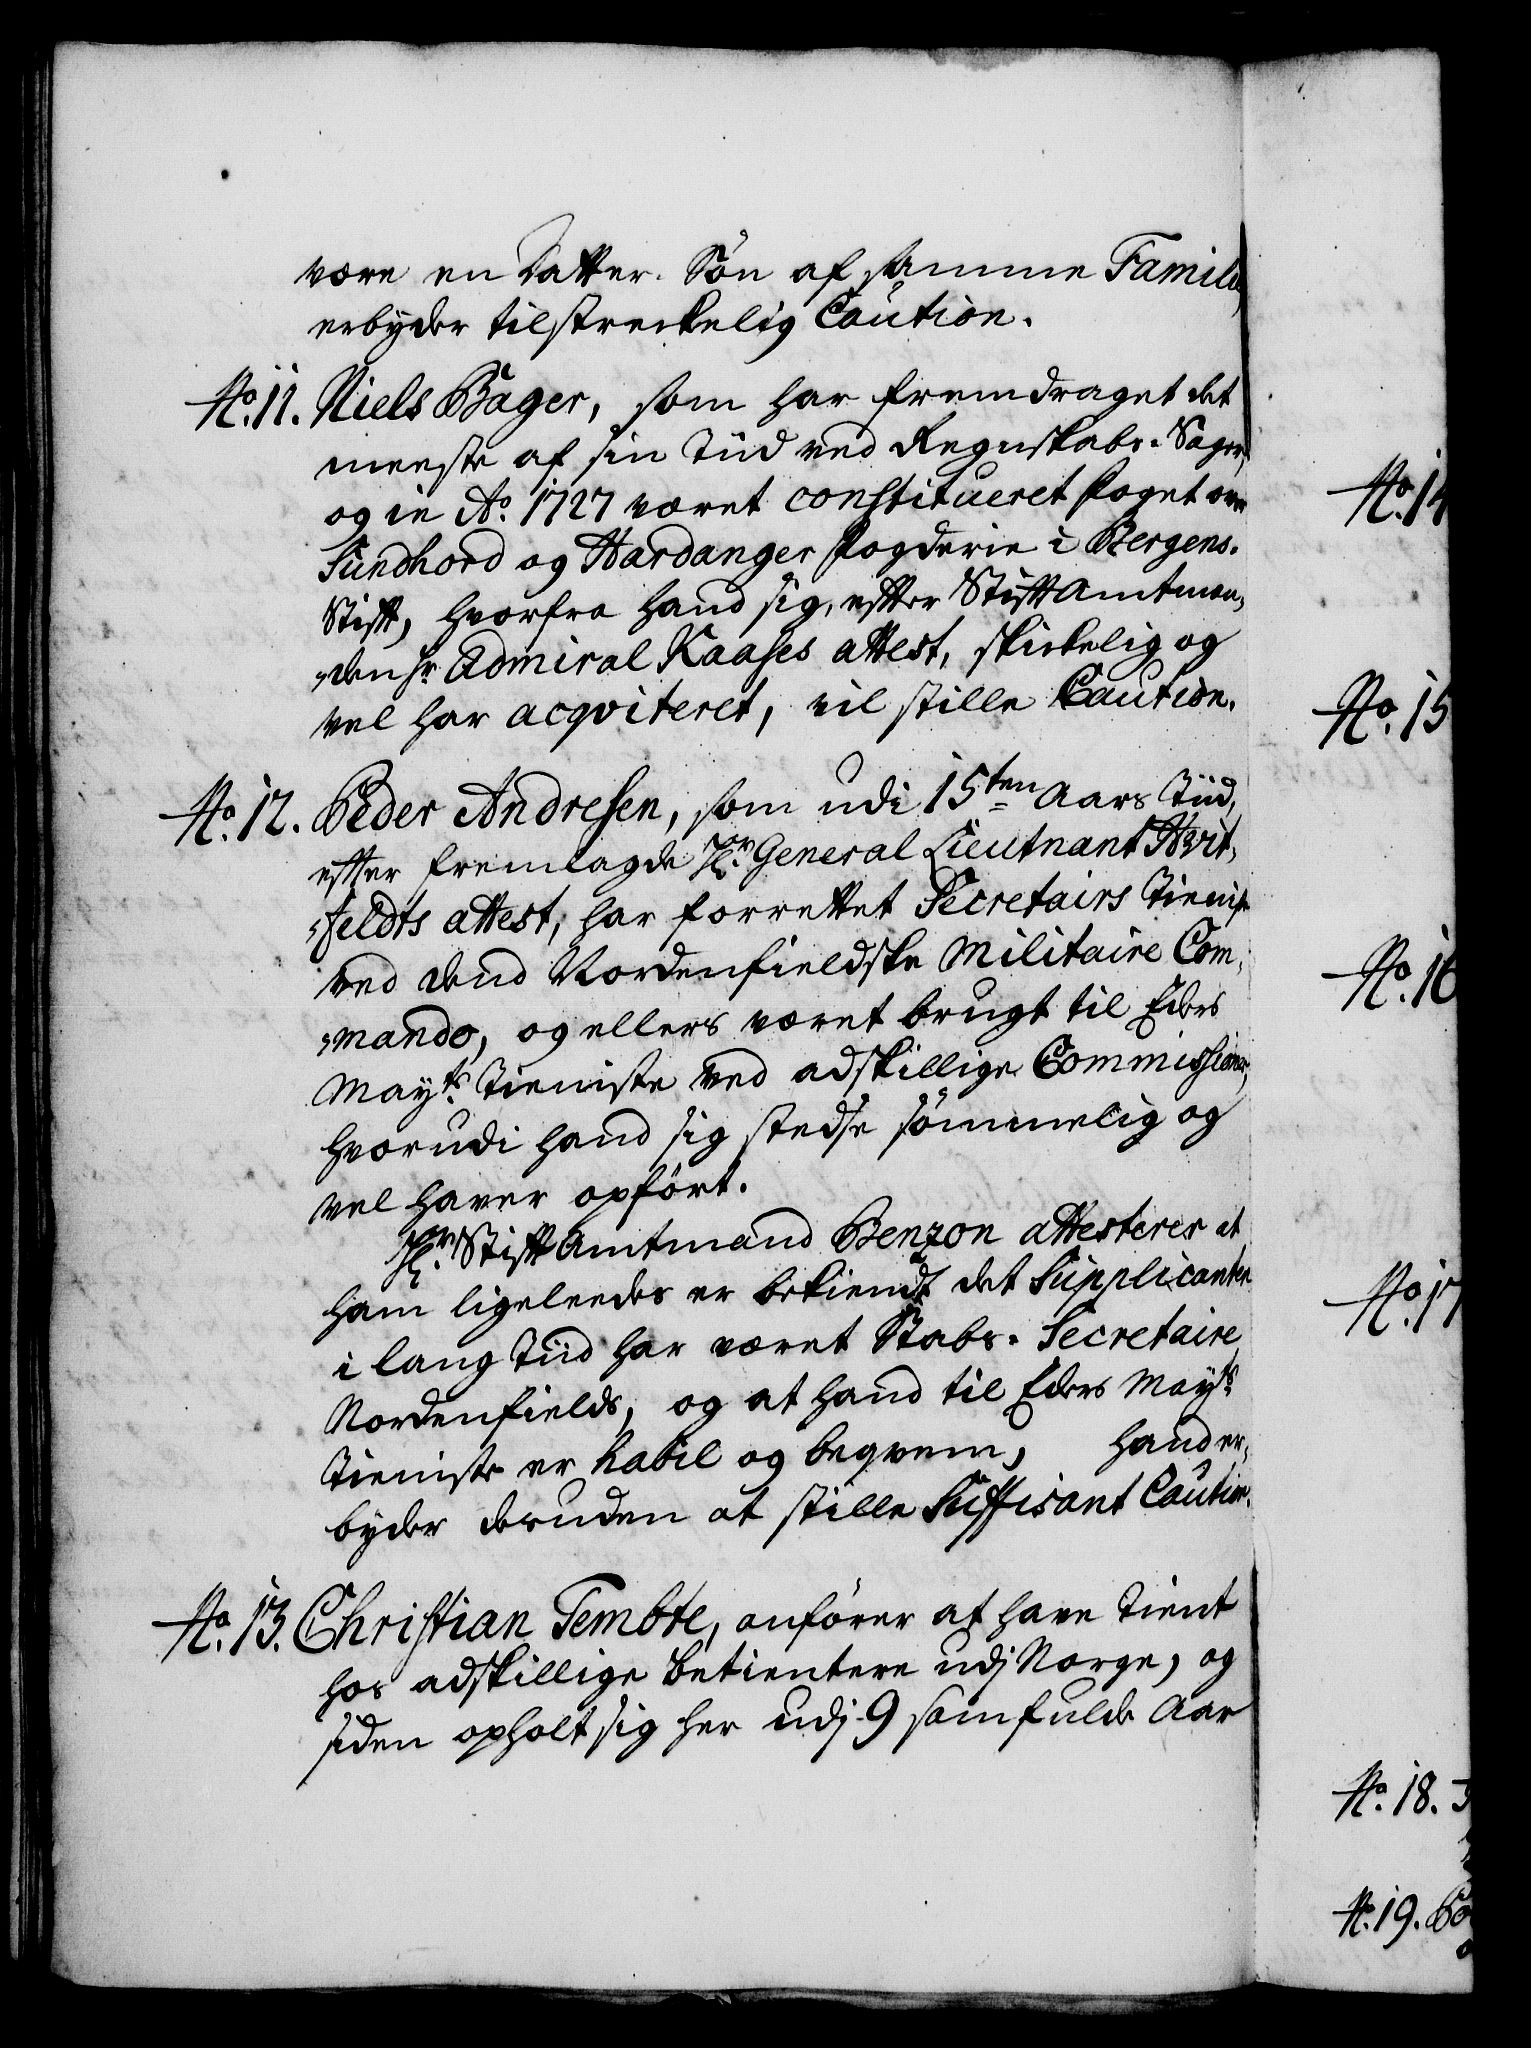 være en Datter-Søn af samme Famili
erbyder tilstreckelig Caution.
No. 11. Niels Bager, som har fremdraget det
meeste af sin Tiid ved Regnskabs-Sager,
og in Ao. 1727 været constitueret Foget over
Sundhord og Hardanger Fogderie i Bergens-
Stift, hvorfra hand sig, efter Stiftamtman,
„den Hr. Admiral Kaases attest, skickelig og
vel har acqviteret, vil stille Caution.
No. 12. Peder Andresen, som udi 15ten Aars Tiid,
efter fremlagde Hr. General Lieutnant Hvit,
„feldts attest, har forrettet Secretairs Tienist
ved dend Nordenfieldske Militaire Com,
„mando, og ellers været brugt til Eders
Mayts. Tieniste ved adskillige Commissioner,
hvorudi hand sig stedse sømmelig og
vel haver opført.
Hr. Stiftamtmand Benzon attesterer at
ham ligeleedes er bekiendt det Supplicanten
i lang Tiid har været Stabs-Secretaire
Nordenfields, og at hand til Eders Mayts
Tieniste er habil og beqvem, hand er,
byder desuden at stille Suffisant Caution.
No. 13. Christian Tembte, anfører at have tient
hos adskillige Betientere udj Norge, og
siden opholt sig her udj 9 samfulde Aar
No. 14
No. 15
No. 16
No. 17
No. 18.
No. 19.